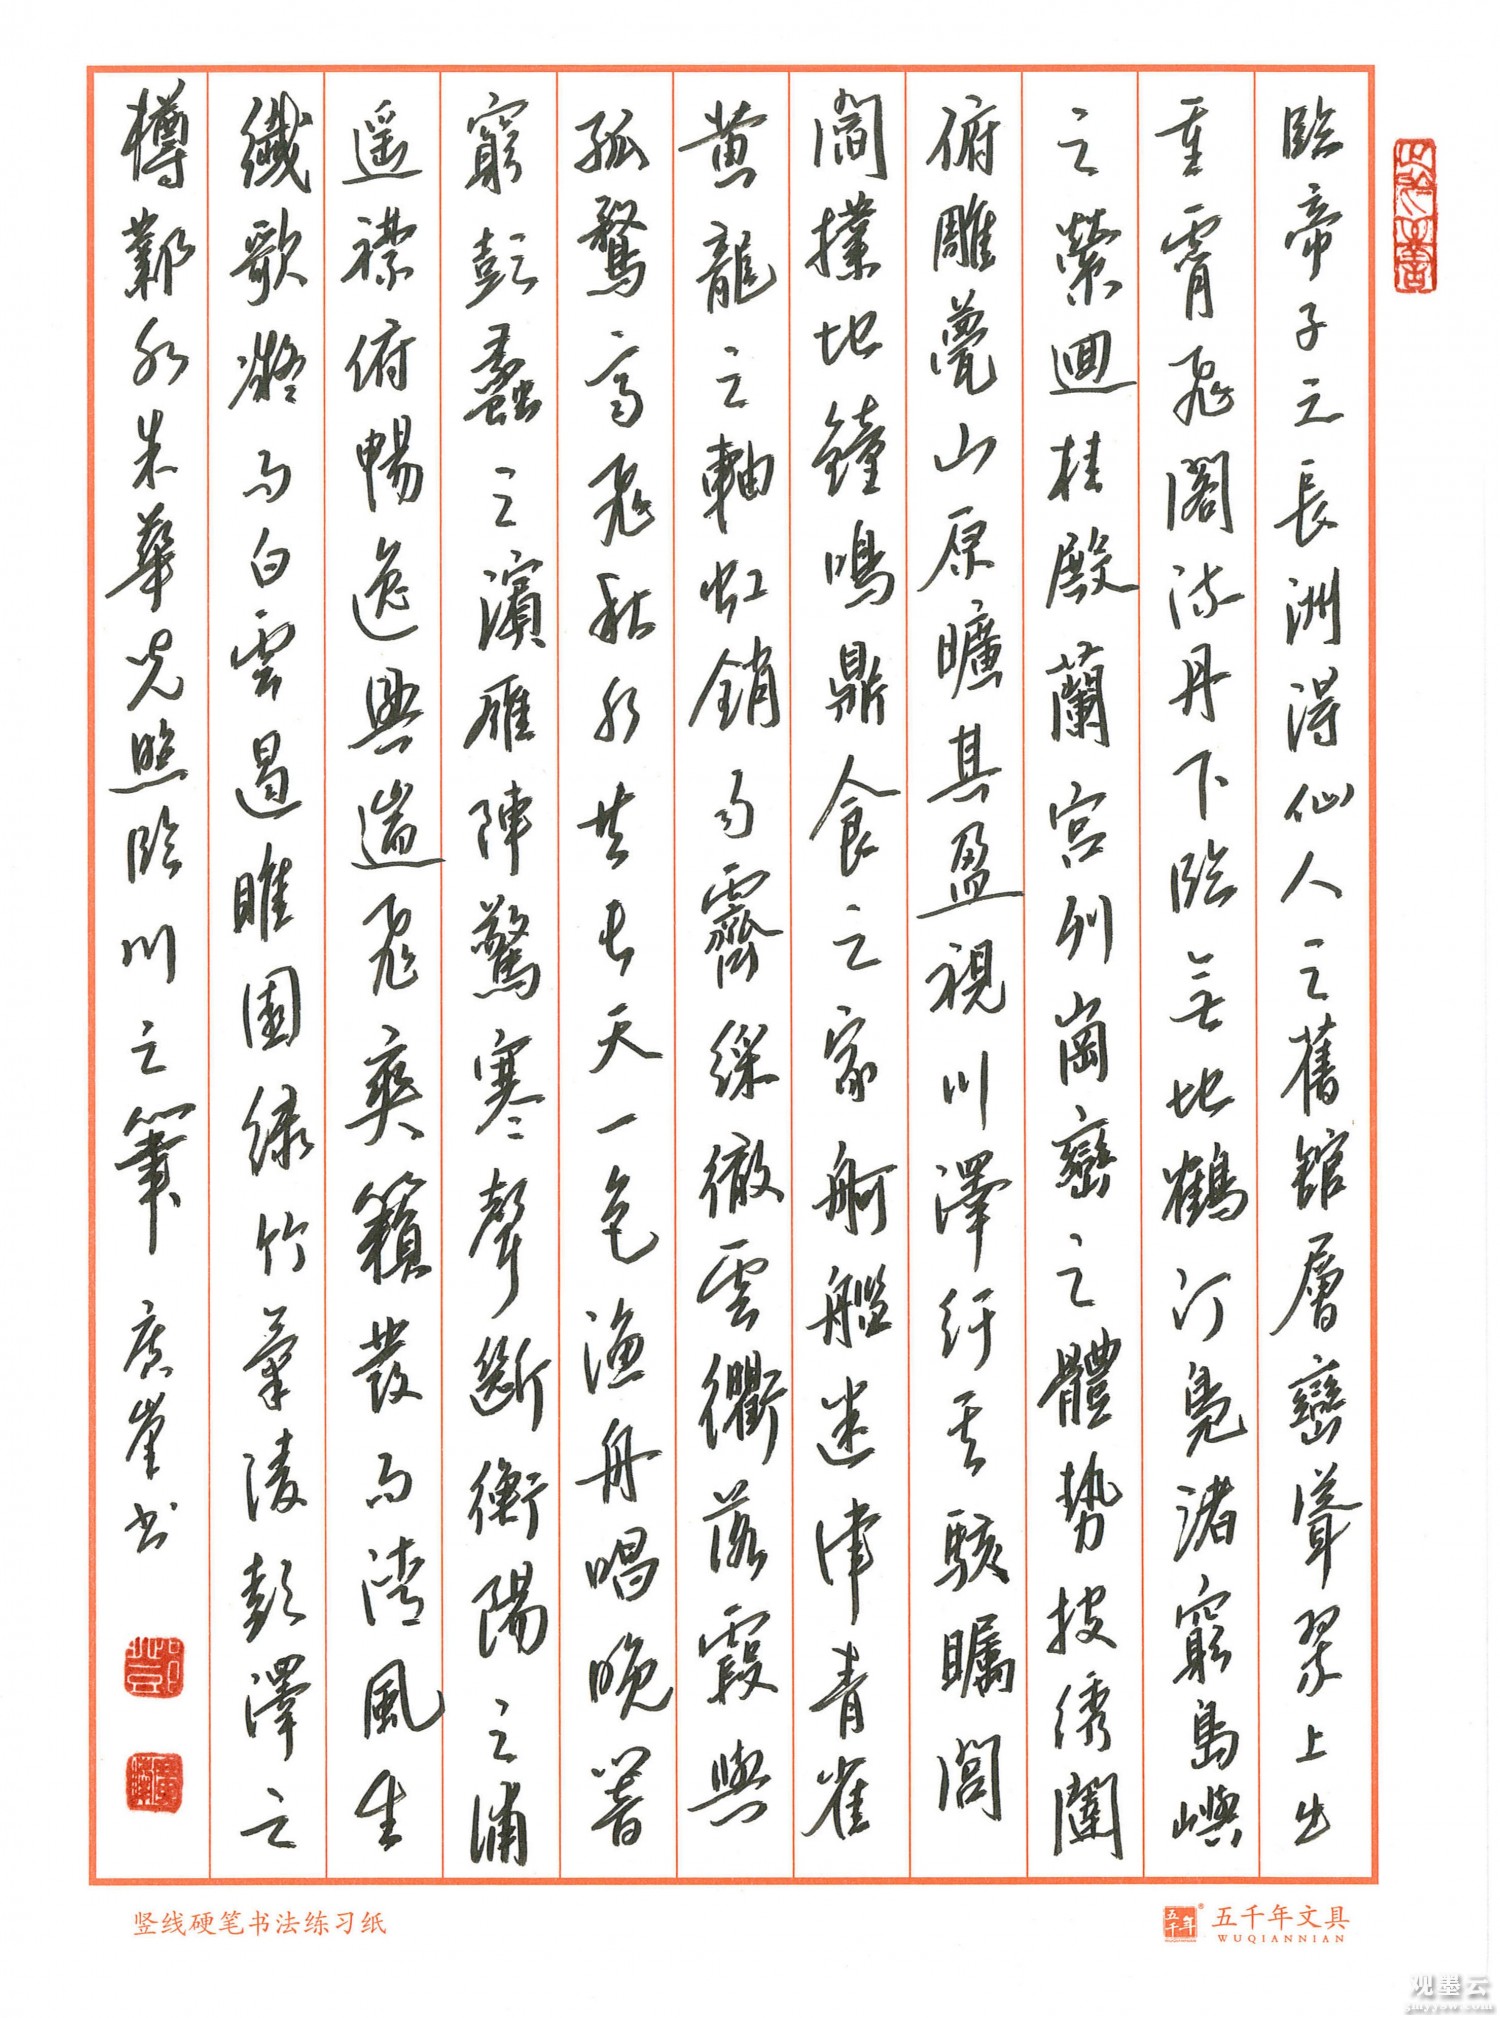 臨帝子之長洲得仙人之舊館層巒聳翠上出
重霄飛閣流丹下臨無地鶴汀鳧渚窮島嶼
之縈迴桂殿蘭宮列崗巒之體勢披绣闥
俯雕甍山原曠其盈視川澤紆其駭矚閭
閻撲地鐘鳴鼎食之家舸艦迷津青雀
黄龍之軸虹銷雨霽綵徹雲衢落霞與
孤鶩齊飛秋水共長天一色漁舟唱晚響
窮彭蠡之濱雁陣驚寒聲斷衡陽之浦
遥襟俯暢逸興遄飛爽籟發而清風生
纖歌凝而白雲遏睢園绿竹氣凌彭澤之
樽鄴水朱華光照臨川之筆 广崖书
竖线硬笔书法练习纸
五千年
五千年文具
WUQIANNIAN
观墨云
gmyyow.com